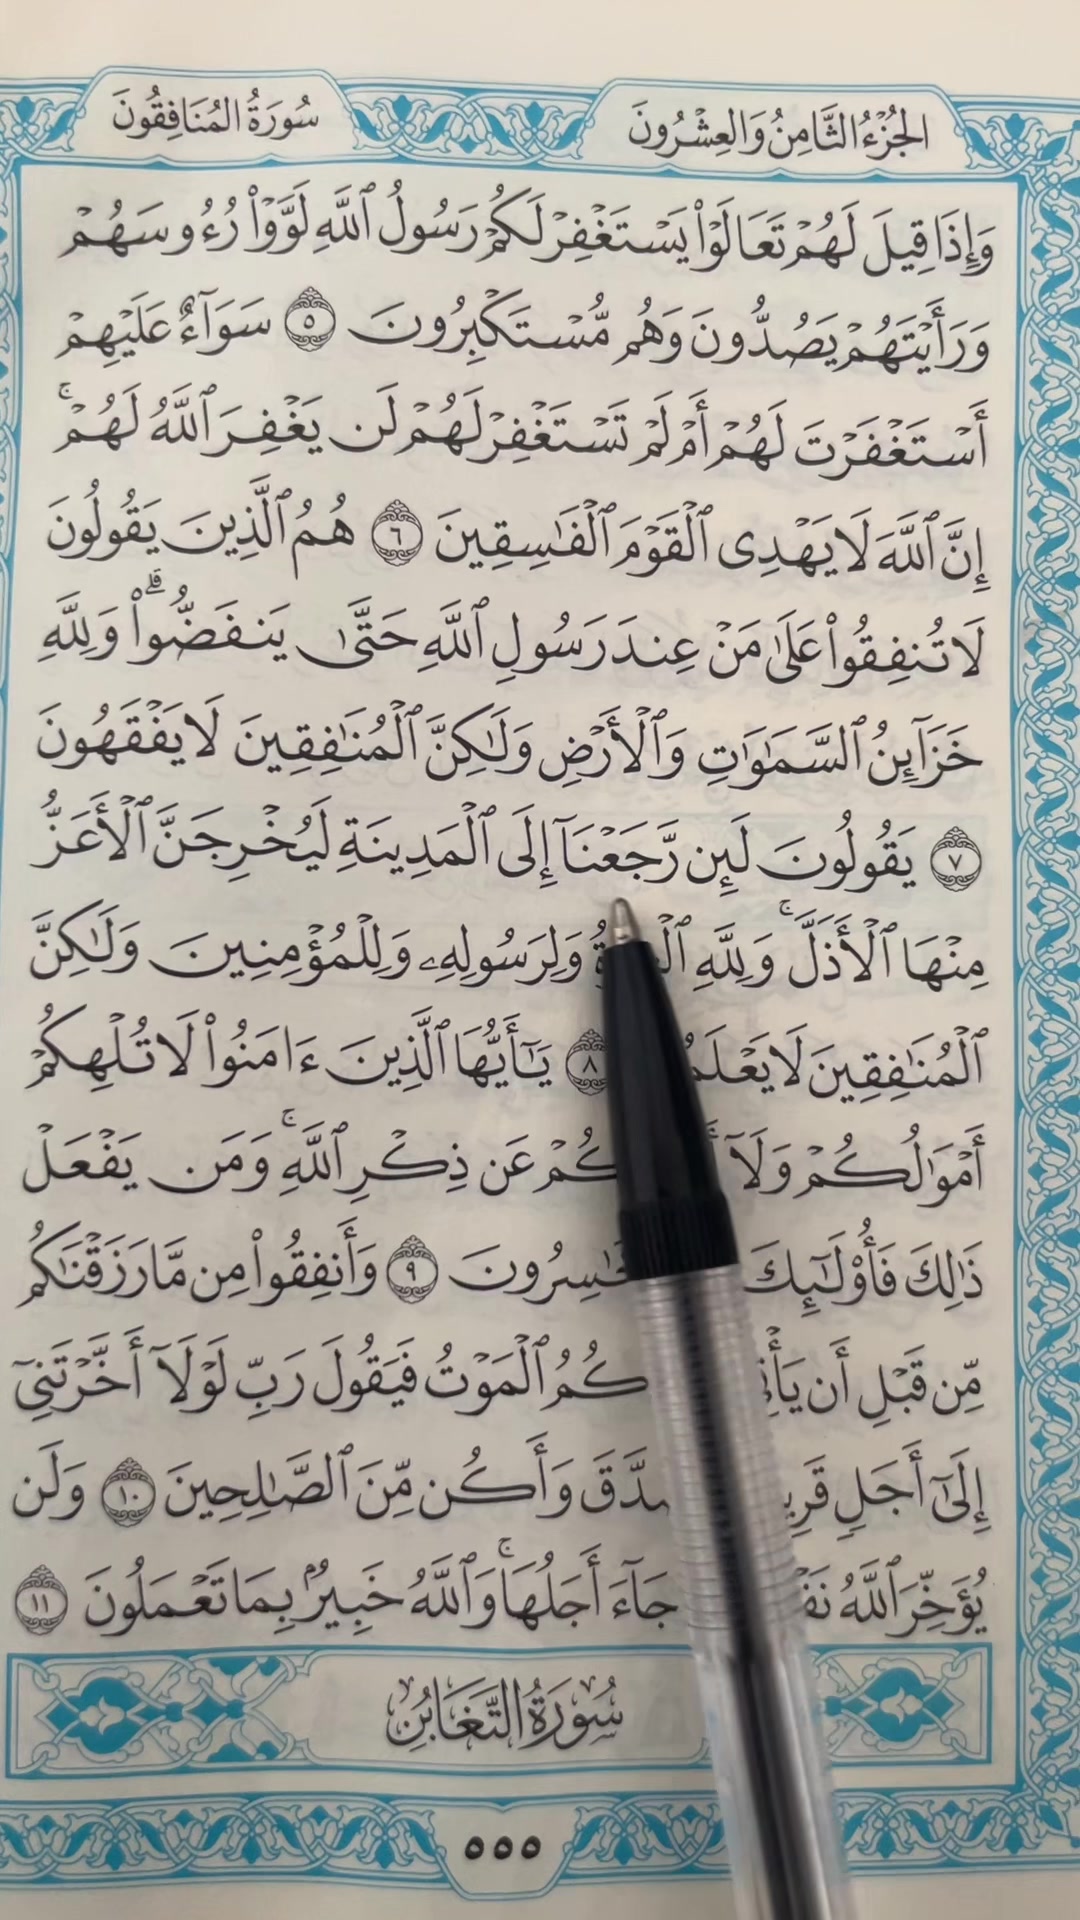 الجُزْءُ الثَّامِنُ وَالعِشْرُونَ
سُورَةُ المُنَافِقُونَ
وَإِذَا قِيلَ لَهُمْ تَعَالَوْا۟ يَسْتَغْفِرْ لَكُمْ رَسُولُ ٱللَّهِ لَوَّوْا۟ رُءُوسَهُمْ
وَرَأَيْتَهُمْ يَصُدُّونَ وَهُم مُّسْتَكْبِرُونَ ٥ سَوَآءٌ عَلَيْهِمْ
أَسْتَغْفَرْتَ لَهُمْ أَمْ لَمْ تَسْتَغْفِرْ لَهُمْ لَن يَغْفِرَ ٱللَّهُ لَهُمْ ۚ
إِنَّ ٱللَّهَ لَا يَهْدِى ٱلْقَوْمَ ٱلْفَـٰسِقِينَ ٦ هُمُ ٱلَّذِينَ يَقُولُونَ
لَا تُنفِقُوا۟ عَلَىٰ مَنْ عِندَ رَسُولِ ٱللَّهِ حَتَّىٰ يَنفَضُّوا۟ ۗ وَلِلَّهِ
خَزَآئِنُ ٱلسَّمَـٰوَٰتِ وَٱلْأَرْضِ وَلَـٰكِنَّ ٱلْمُنَـٰفِقِينَ لَا يَفْقَهُونَ
٧ يَقُولُونَ لَئِن رَّجَعْنَآ إِلَى ٱلْمَدِينَةِ لَيُخْرِجَنَّ ٱلْأَعَزُّ
مِنْهَا ٱلْأَذَلَّ ۚ وَلِلَّهِ وَلِرَسُولِهِۦ وَلِلْمُؤْمِنِينَ وَلَـٰكِنَّ
ٱلْمُنَـٰفِقِينَ لَا ٨ يَـٰٓأَيُّهَا ٱلَّذِينَ ءَامَنُوا۟ لَا تُلْهِكُمْ
أَمْوَٰلُكُمْ وَلَآ عَن ذِكْرِ ٱللَّهِ ۚ وَمَن يَفْعَلْ
ذَٰلِكَ فَأُو۟لَـٰٓئِكَ ٩ وَأَنفِقُوا۟ مِن مَّا رَزَقْنَـٰكُم
مِّن قَبْلِ أَن ٱلْمَوْتُ فَيَقُولَ رَبِّ لَوْلَآ أَخَّرْتَنِىٓ
إِلَىٰٓ أَجَلٍ وَأَكُن مِّنَ ٱلصَّـٰلِحِينَ ١٠ وَلَن
يُؤَخِّرَ ٱللَّهُ جَآءَ أَجَلُهَا ۚ وَٱللَّهُ خَبِيرٌۢ بِمَا تَعْمَلُونَ ١١
سُورَةُ التَّغَابُنِ
٥٥٥